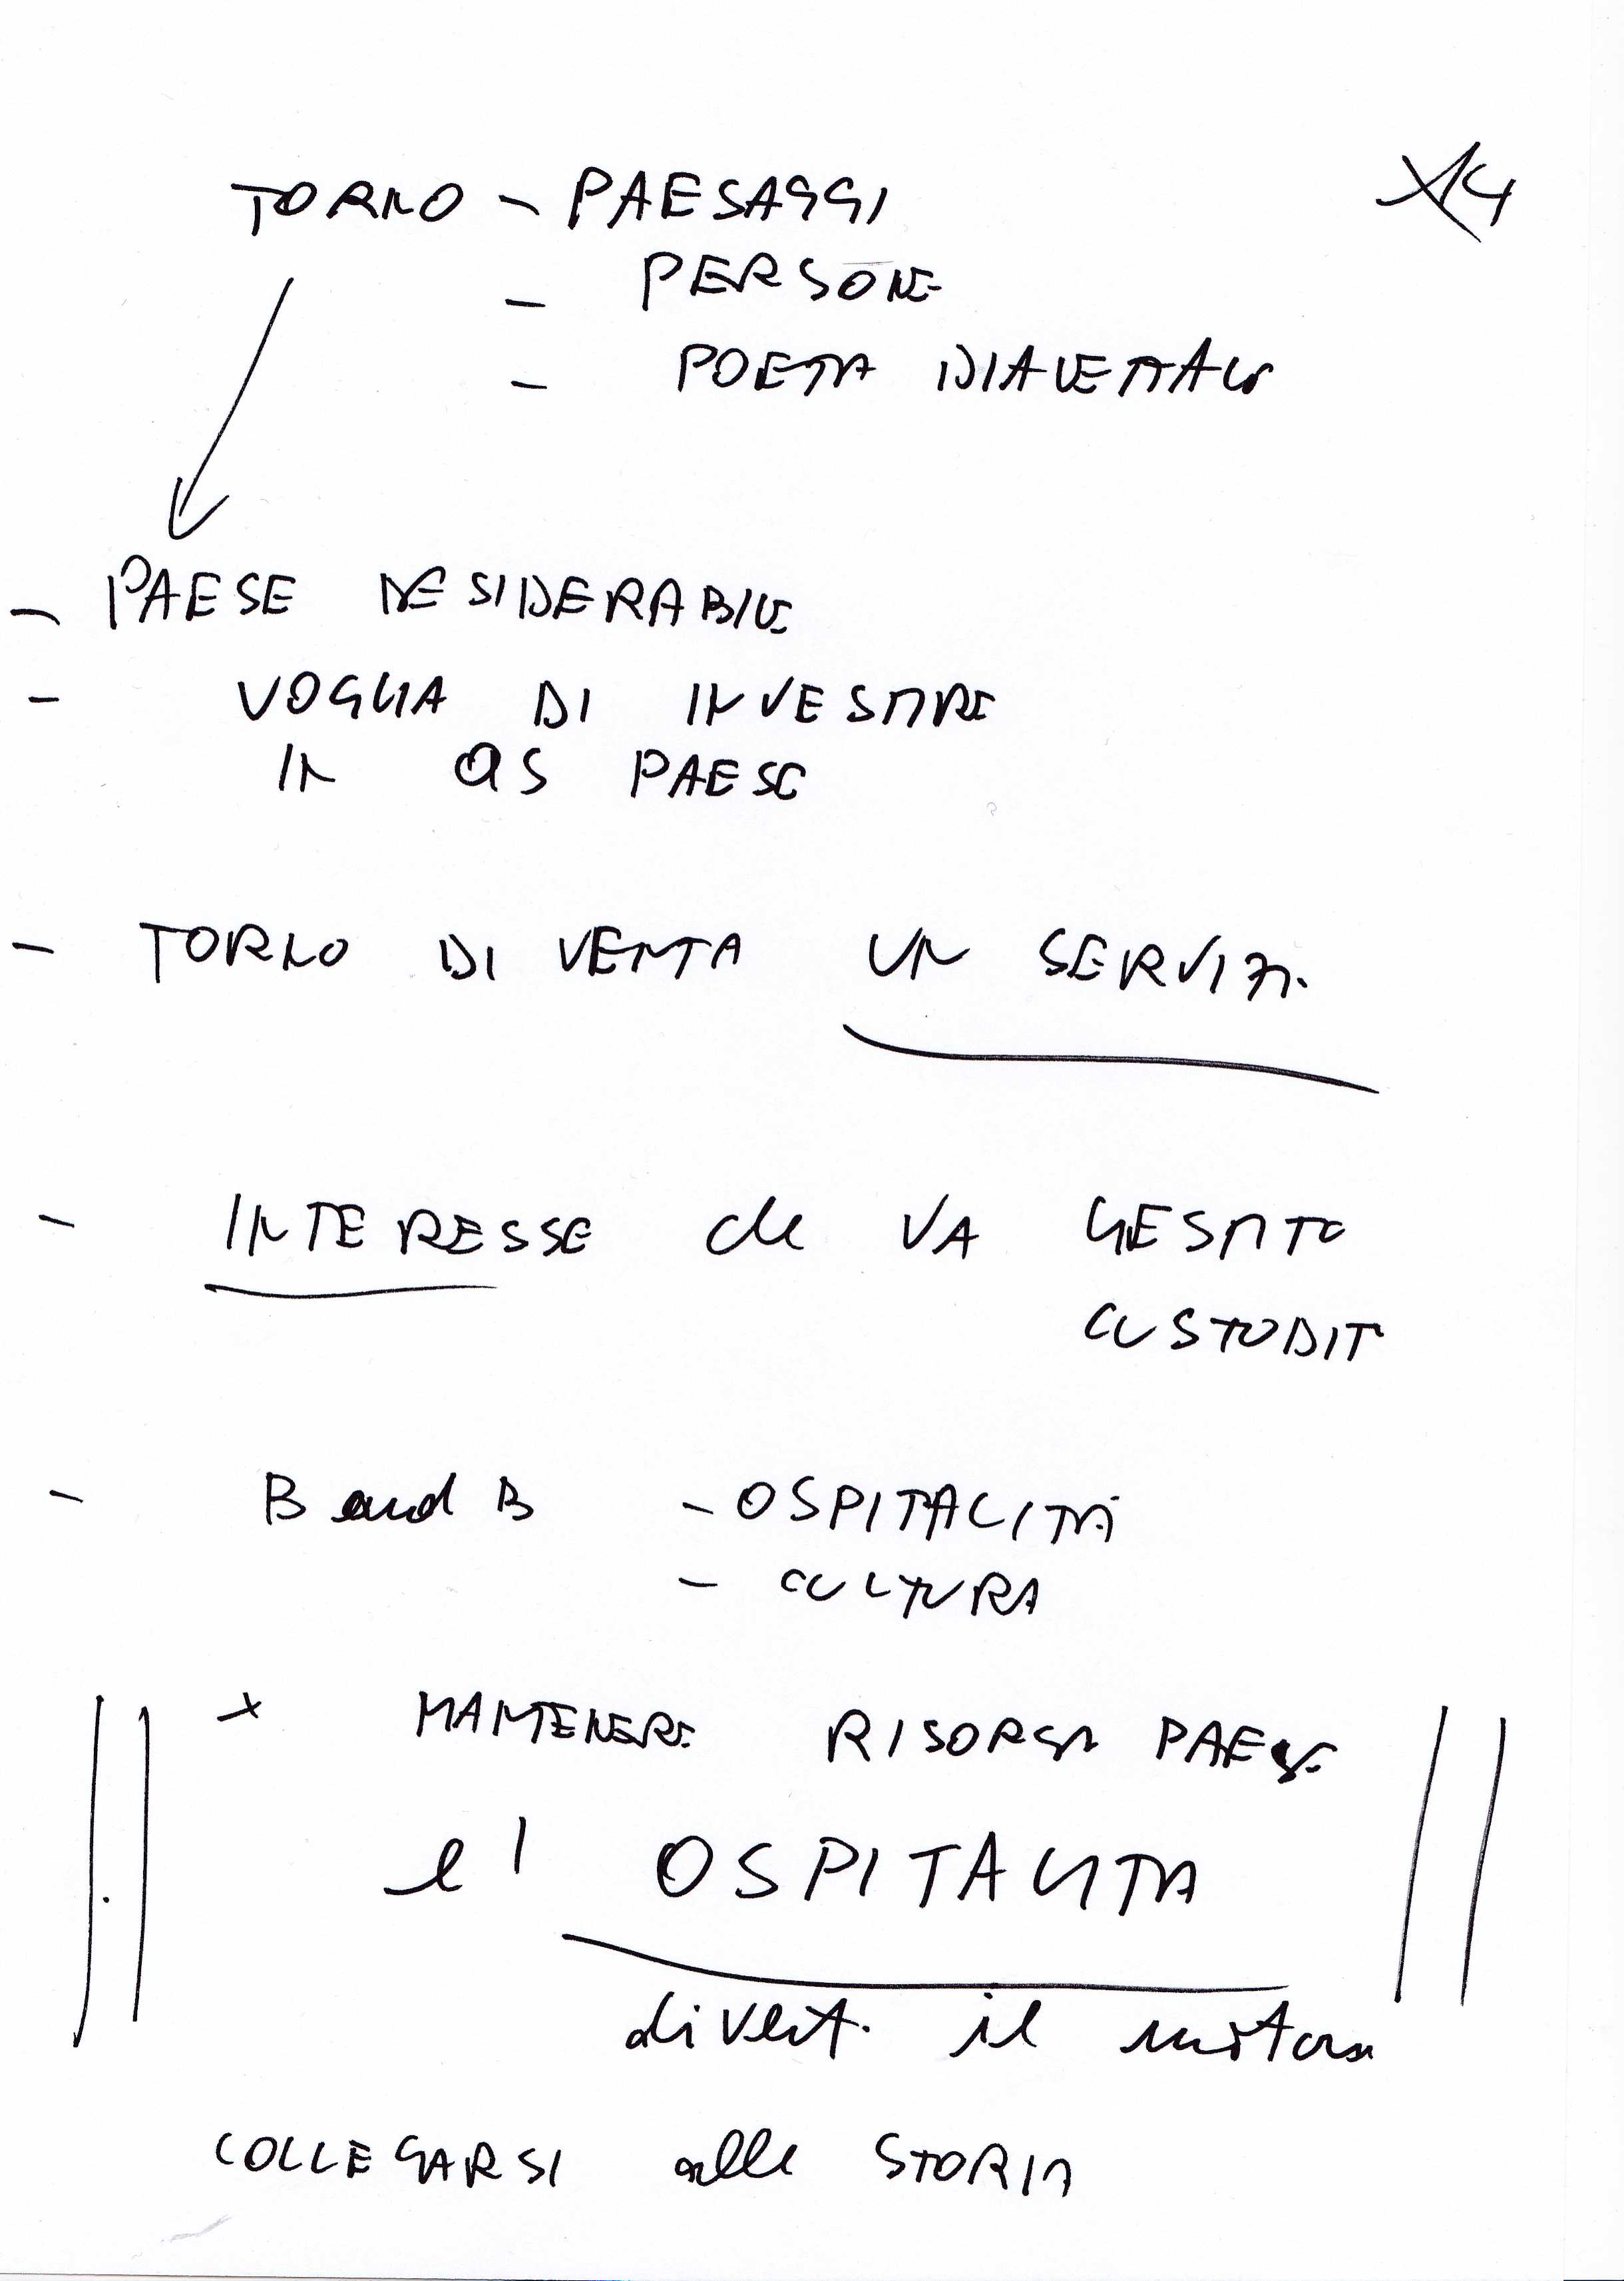 TORNO - PAESAGGI
- PERSONE
- POETA DIALETTALE
- PAESE DESIDERABILE
- VOGLIA DI INVESTIRE
IN QS PAESE
- TORNO DIVENTA UN SERVIZIO
- INTERESSE che VA GESTITO
CUSTODIT
- B and B - OSPITALITÀ
- CULTURA
+ MANTENERE RISORSA PAESE
e l' OSPITALITA
divent. il motore
COLLEGARSI alla STORIA